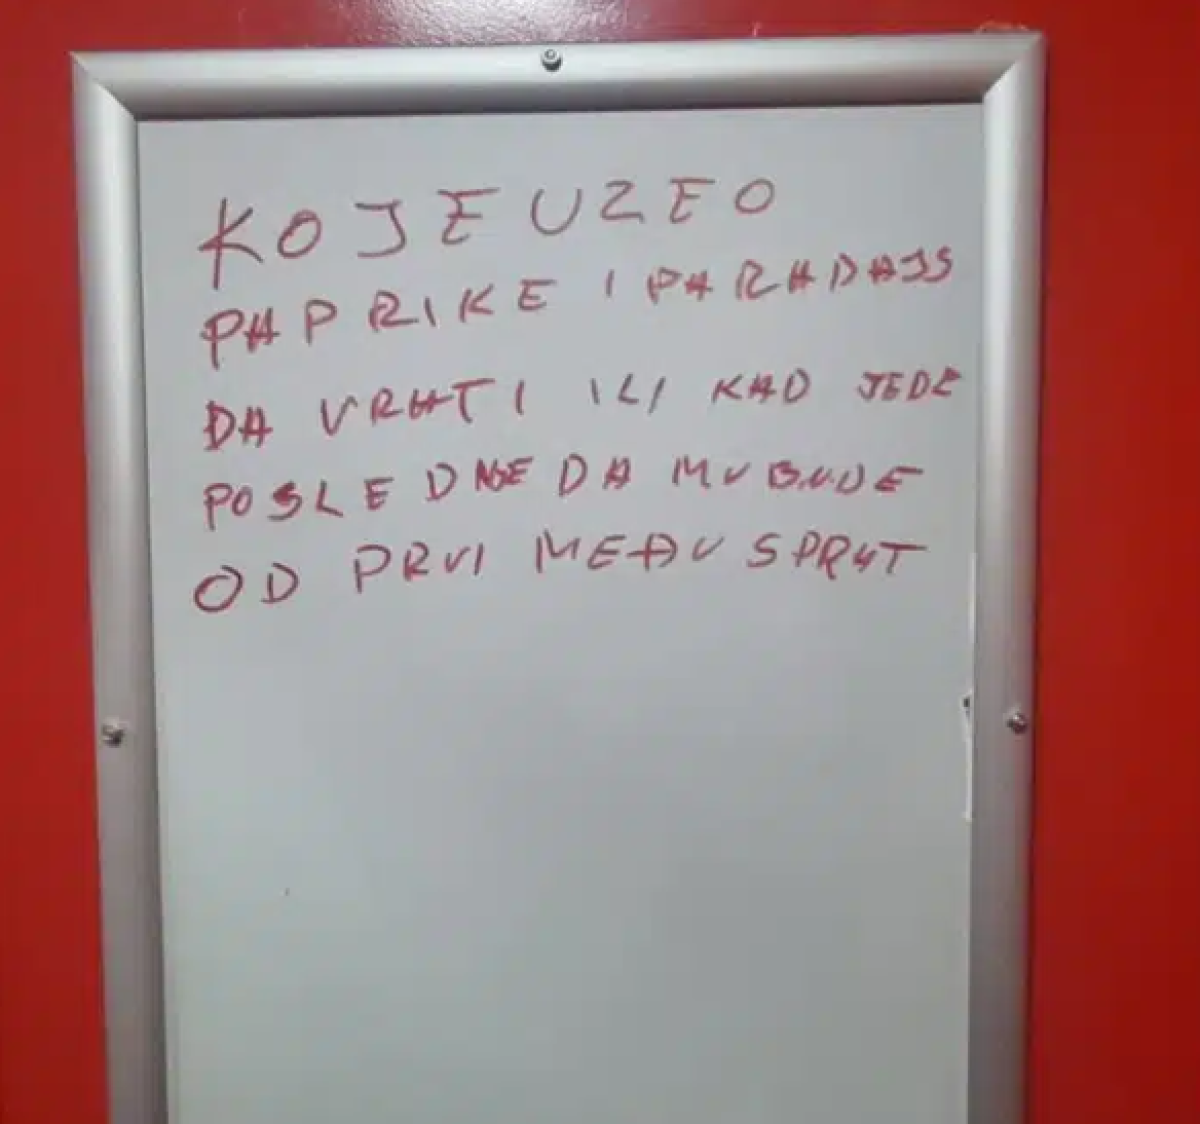 KO JE UZEO
PAPRIKE I PARADAJS
DA VRATI ILI KAD JEDE
POSLEDNJE DA MU BUDE
OD PRVI MEĐUSPRAT